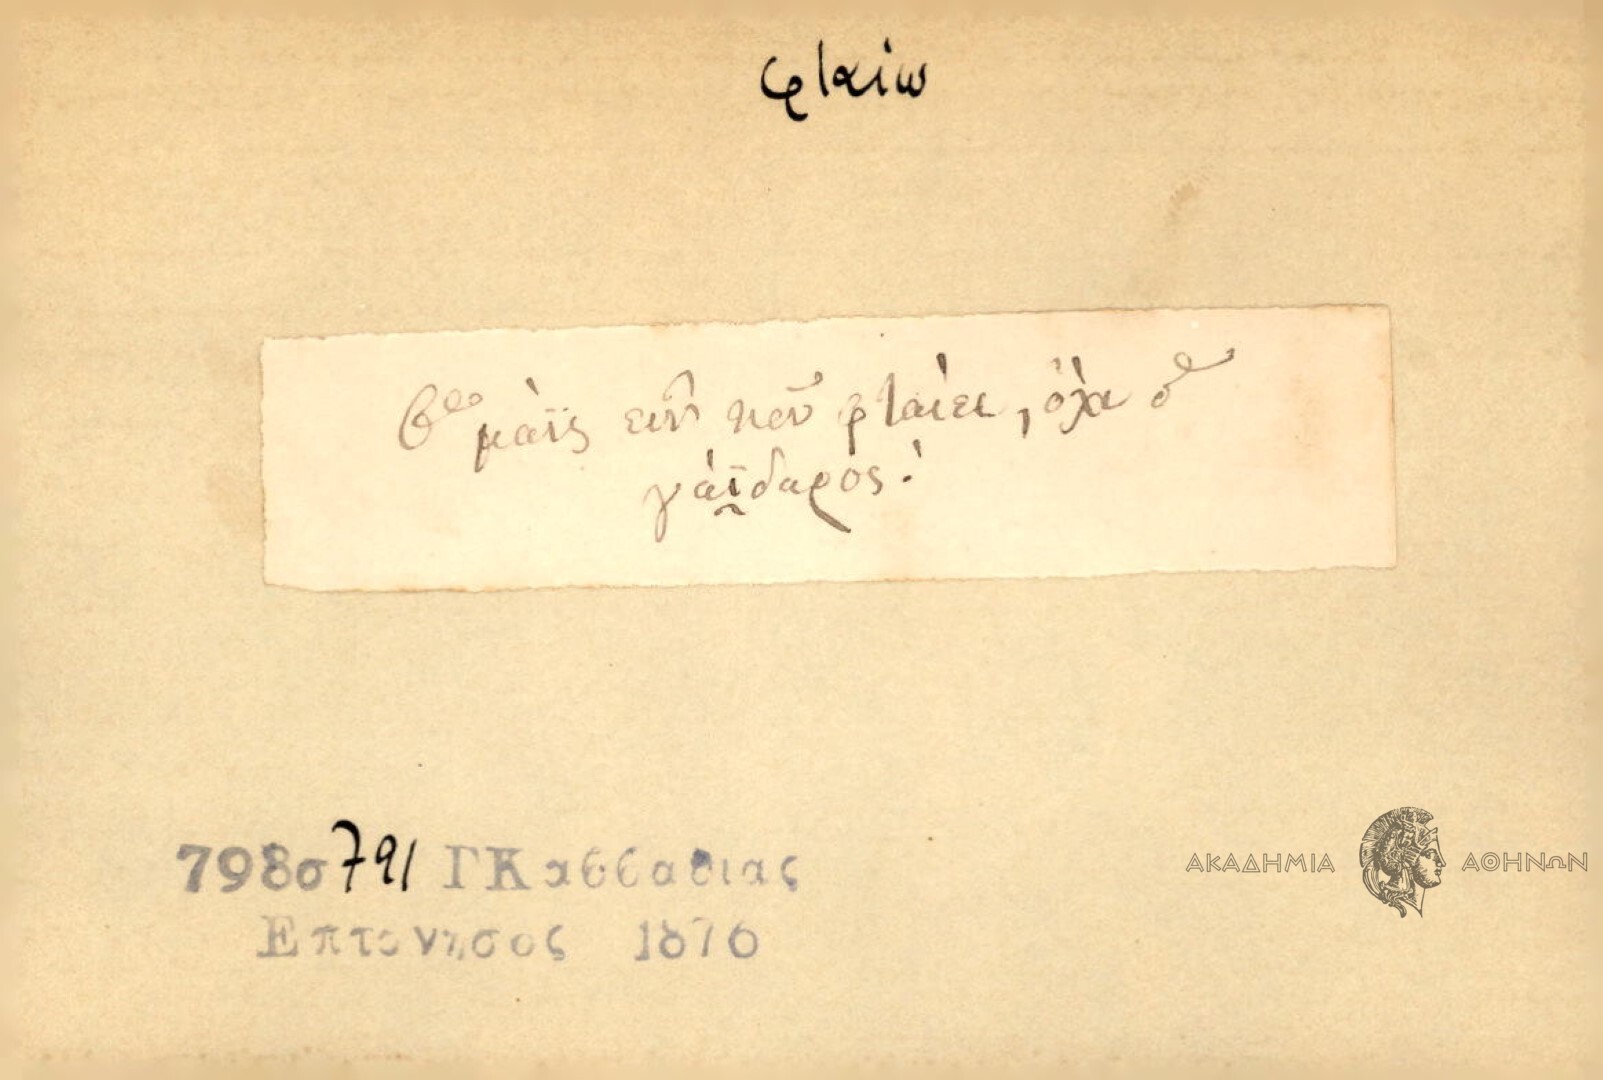 φταίω
μάϊς εἶν' ποῦ φταίει, ὄχι ὁ
γάϊδαρος.
798σ 791 ΓΚαββαδιας
Επτανησος 1876
ΑΚΑΔΗΜΙΑ ΑΘΗΝΩΝ